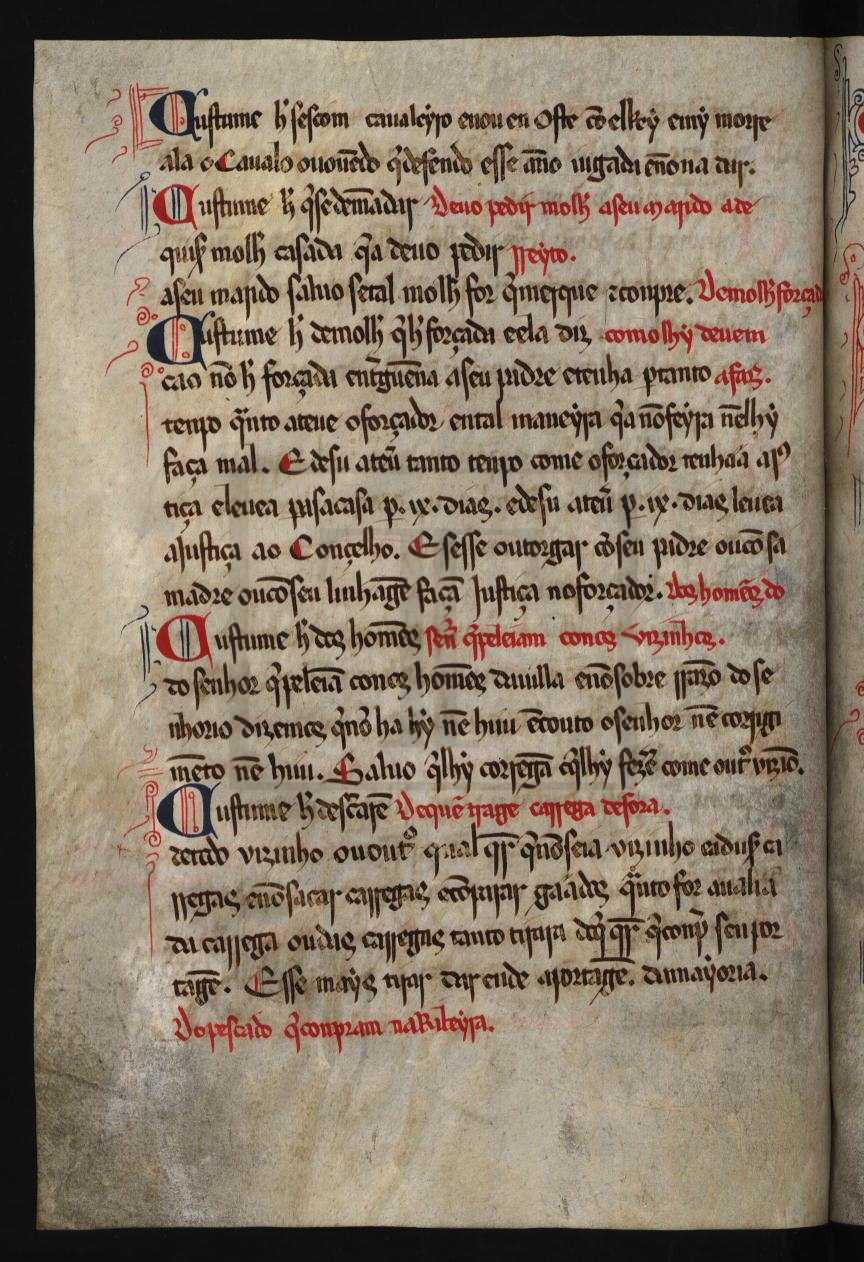 Custume h̃ sescom caualeyro enou en Oste cõ elRey emy morre
ala o Caualo ou ouẽdo q̃ defendo esse ãno iugada e nõ na dar.
Custume h̃ q̃ se demãdar Deuo pedir molh̃ a seu marido a de
quis molh̃ casada q̃ a deuo pedir rreyto.
a seu marido saluo se tal molh̃ for q̃ merque ⁊ conpre. De molh̃ forçada
Custume h̃ de molh̃ q̃ h̃ forçada e ela diz como lhy deuem
cao nõ h̃ forçada entregue na a seu padre e tenha p tanto a faz.
tenpo q̃nto a teue o forçador en tal maneyra q̃ a nõ feyra nẽ lhy
faça mal. E de su a teũ tanto tenpo come o forçador tenha a a ius
tiça e leuea pa sa casa p. ix. dias. e de su a teũ p. ix. dias leuea
a Justiça ao Conçelho. E sesse outorgar cõ seu padre ou cõ sa
madre ou cõ seu linhagẽ façã Justiça no forçador. dos homẽs do
Custume h̃ dos homẽs senr̃ q̃ peleiam con os vizinhos.
do senhor q̃ peleiã con os homẽs da uilla e nõ sobre rrazõ do se
nhorio dizemos q̃ nõ ha hy nẽ huu ẽcouto o senhor nẽ corrigi
mẽto nẽ huu. Saluo q̃ lhy corregã o q̃ lhy fezẽ come outro vizĩo.
Custume h̃ descarẽ De quẽ trage carrega de fora.
de todo vizinho ou outro qual q̃r q̃ nõ seia vizinho e adus ca
rregas e nõ sacar carregas e cõprar gaados q̃nto for a ualia
da carrega ou das carregas tanto tirara do q̃ q̃r q̃ conp̃ seu por
tagẽ. E sse mays tirar dar ende a portagẽ. da mayoria.
Do pescado q̃ conpram na Ribeyra.